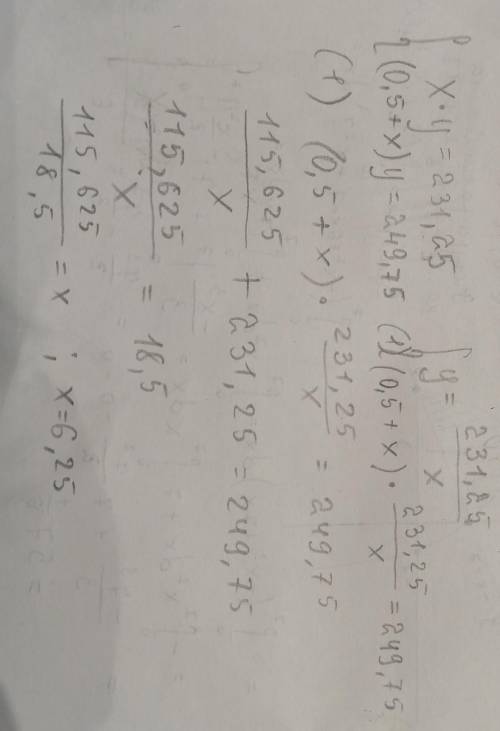 { x·y = 231,25
{ (0,5+x)y = 249,75
{ y = 231,25/x
(1) { (0,5+x)· 231,25/x = 249,75
(1) (0,5+x)· 231,25/x = 249,75
115,625/x + 231,25 = 249,75
115,625/x = 18,5
115,625/18,5 = x ; x=6,25